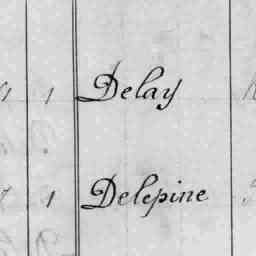 1 Delay
1 Delepine